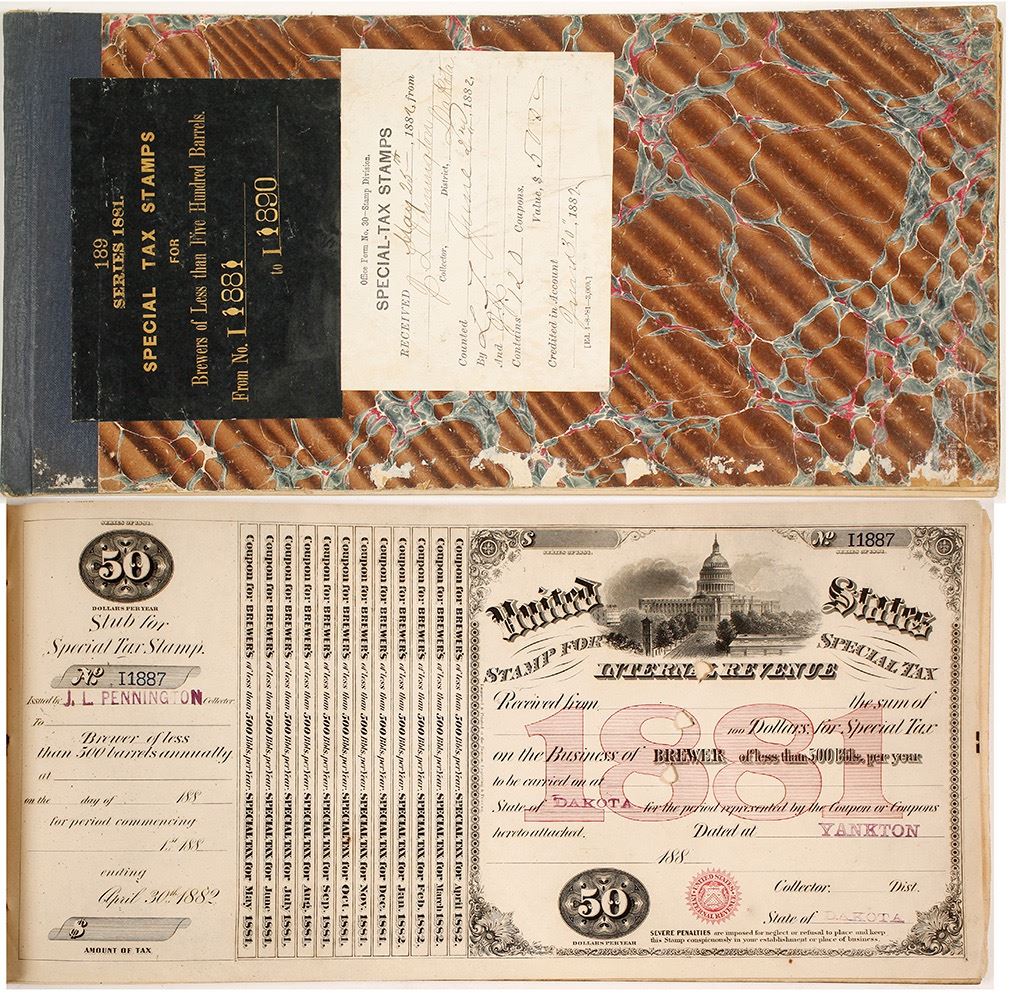 189
SERIES 1881.
SPECIAL TAX STAMPS
FOR
Brewers of Less than Five Hundred Barrels.
From No. I 1881
to I 1890
Office Form No. 30—Stamp Division.
SPECIAL-TAX STAMPS
RECEIVED May 25th, 1882, from
J. L. Pennington
Collector, District, Dakota
Counted June 2nd, 1882,
By
And
Contains 120 Coupons.
Value, $
Credited in Account
June 30, 1882
SERIES OF 1881.
50
DOLLARS PER YEAR
Stub for
Special Tax Stamp.
No I1887
Issued by J. L. PENNINGTON Collector
To
Brewer of less
than 500 barrels annually
at
on the day of 188
for period commencing
1st 188
ending
April 30th 1882
$
AMOUNT OF TAX
Coupon for BREWERS of less than 500 bbls. per Year. SPECIAL TAX for May 1881.
Coupon for BREWERS of less than 500 bbls. per Year. SPECIAL TAX for June 1881.
Coupon for BREWERS of less than 500 bbls. per Year. SPECIAL TAX for July 1881.
Coupon for BREWERS of less than 500 bbls. per Year. SPECIAL TAX for Aug. 1881.
Coupon for BREWERS of less than 500 bbls. per Year. SPECIAL TAX for Sep. 1881.
Coupon for BREWERS of less than 500 bbls. per Year. SPECIAL TAX for Oct. 1881.
Coupon for BREWERS of less than 500 bbls. per Year. SPECIAL TAX for Nov. 1881.
Coupon for BREWERS of less than 500 bbls. per Year. SPECIAL TAX for Dec. 1881.
Coupon for BREWERS of less than 500 bbls. per Year. SPECIAL TAX for Jan. 1882.
Coupon for BREWERS of less than 500 bbls. per Year. SPECIAL TAX for Feb. 1882.
Coupon for BREWERS of less than 500 bbls. per Year. SPECIAL TAX for March 1882.
Coupon for BREWERS of less than 500 bbls. per Year. SPECIAL TAX for April 1882.
$
SERIES OF 1881.
No I1887
SERIES OF 1881.
United States
STAMP FOR SPECIAL TAX
INTERNAL REVENUE
1881
Received from the sum of
100 Dollars, for Special Tax
on the Business of BREWER of less than 500 Bbls. per year
to be carried on at
State of DAKOTA for the period represented by the Coupon or Coupons
hereto attached. Dated at YANKTON
188
50
DOLLARS PER YEAR
UNITED STATES INTERNAL REVENUE
Collector. Dist.
State of DAKOTA
SEVERE PENALTIES are imposed for neglect or refusal to place and keep
this Stamp conspicuously in your establishment or place of business.